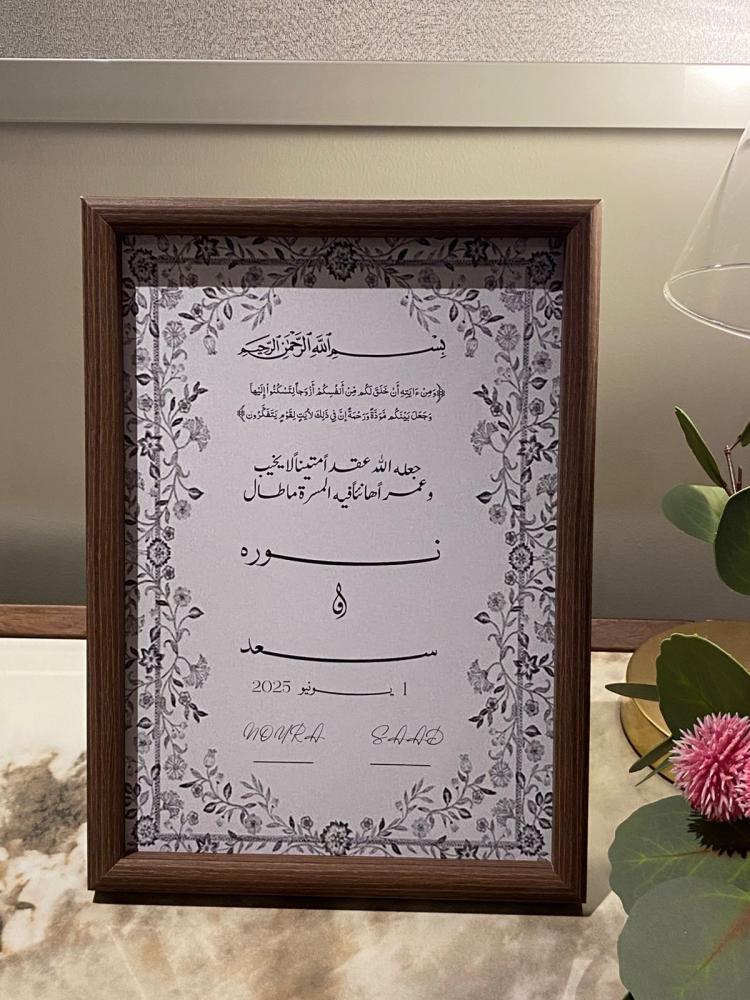 بِسْمِ اللَّهِ الرَّحْمَٰنِ الرَّحِيمِ
﴿وَمِنْ ءَايَٰتِهِ أَنْ خَلَقَ لَكُم مِّنْ أَنفُسِكُمْ أَزْوَٰجاً لِّتَسْكُنُوا إِلَيْهَا
وَجَعَلَ بَيْنَكُم مَّوَدَّةً وَرَحْمَةً إِنَّ فِي ذَٰلِكَ لَأَيَٰتٍ لِّقَوْمٍ يَتَفَكَّرُونَ﴾
جعله الله عقداً متيناً لا يخيب
وعمراً هانئاً فيه المسرة ما طال
نوره
و
سعد
1 يونيو 2025
NOURA SAAD